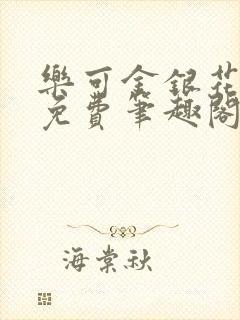 樂可金銀花
免費筆趣閣
海棠秋